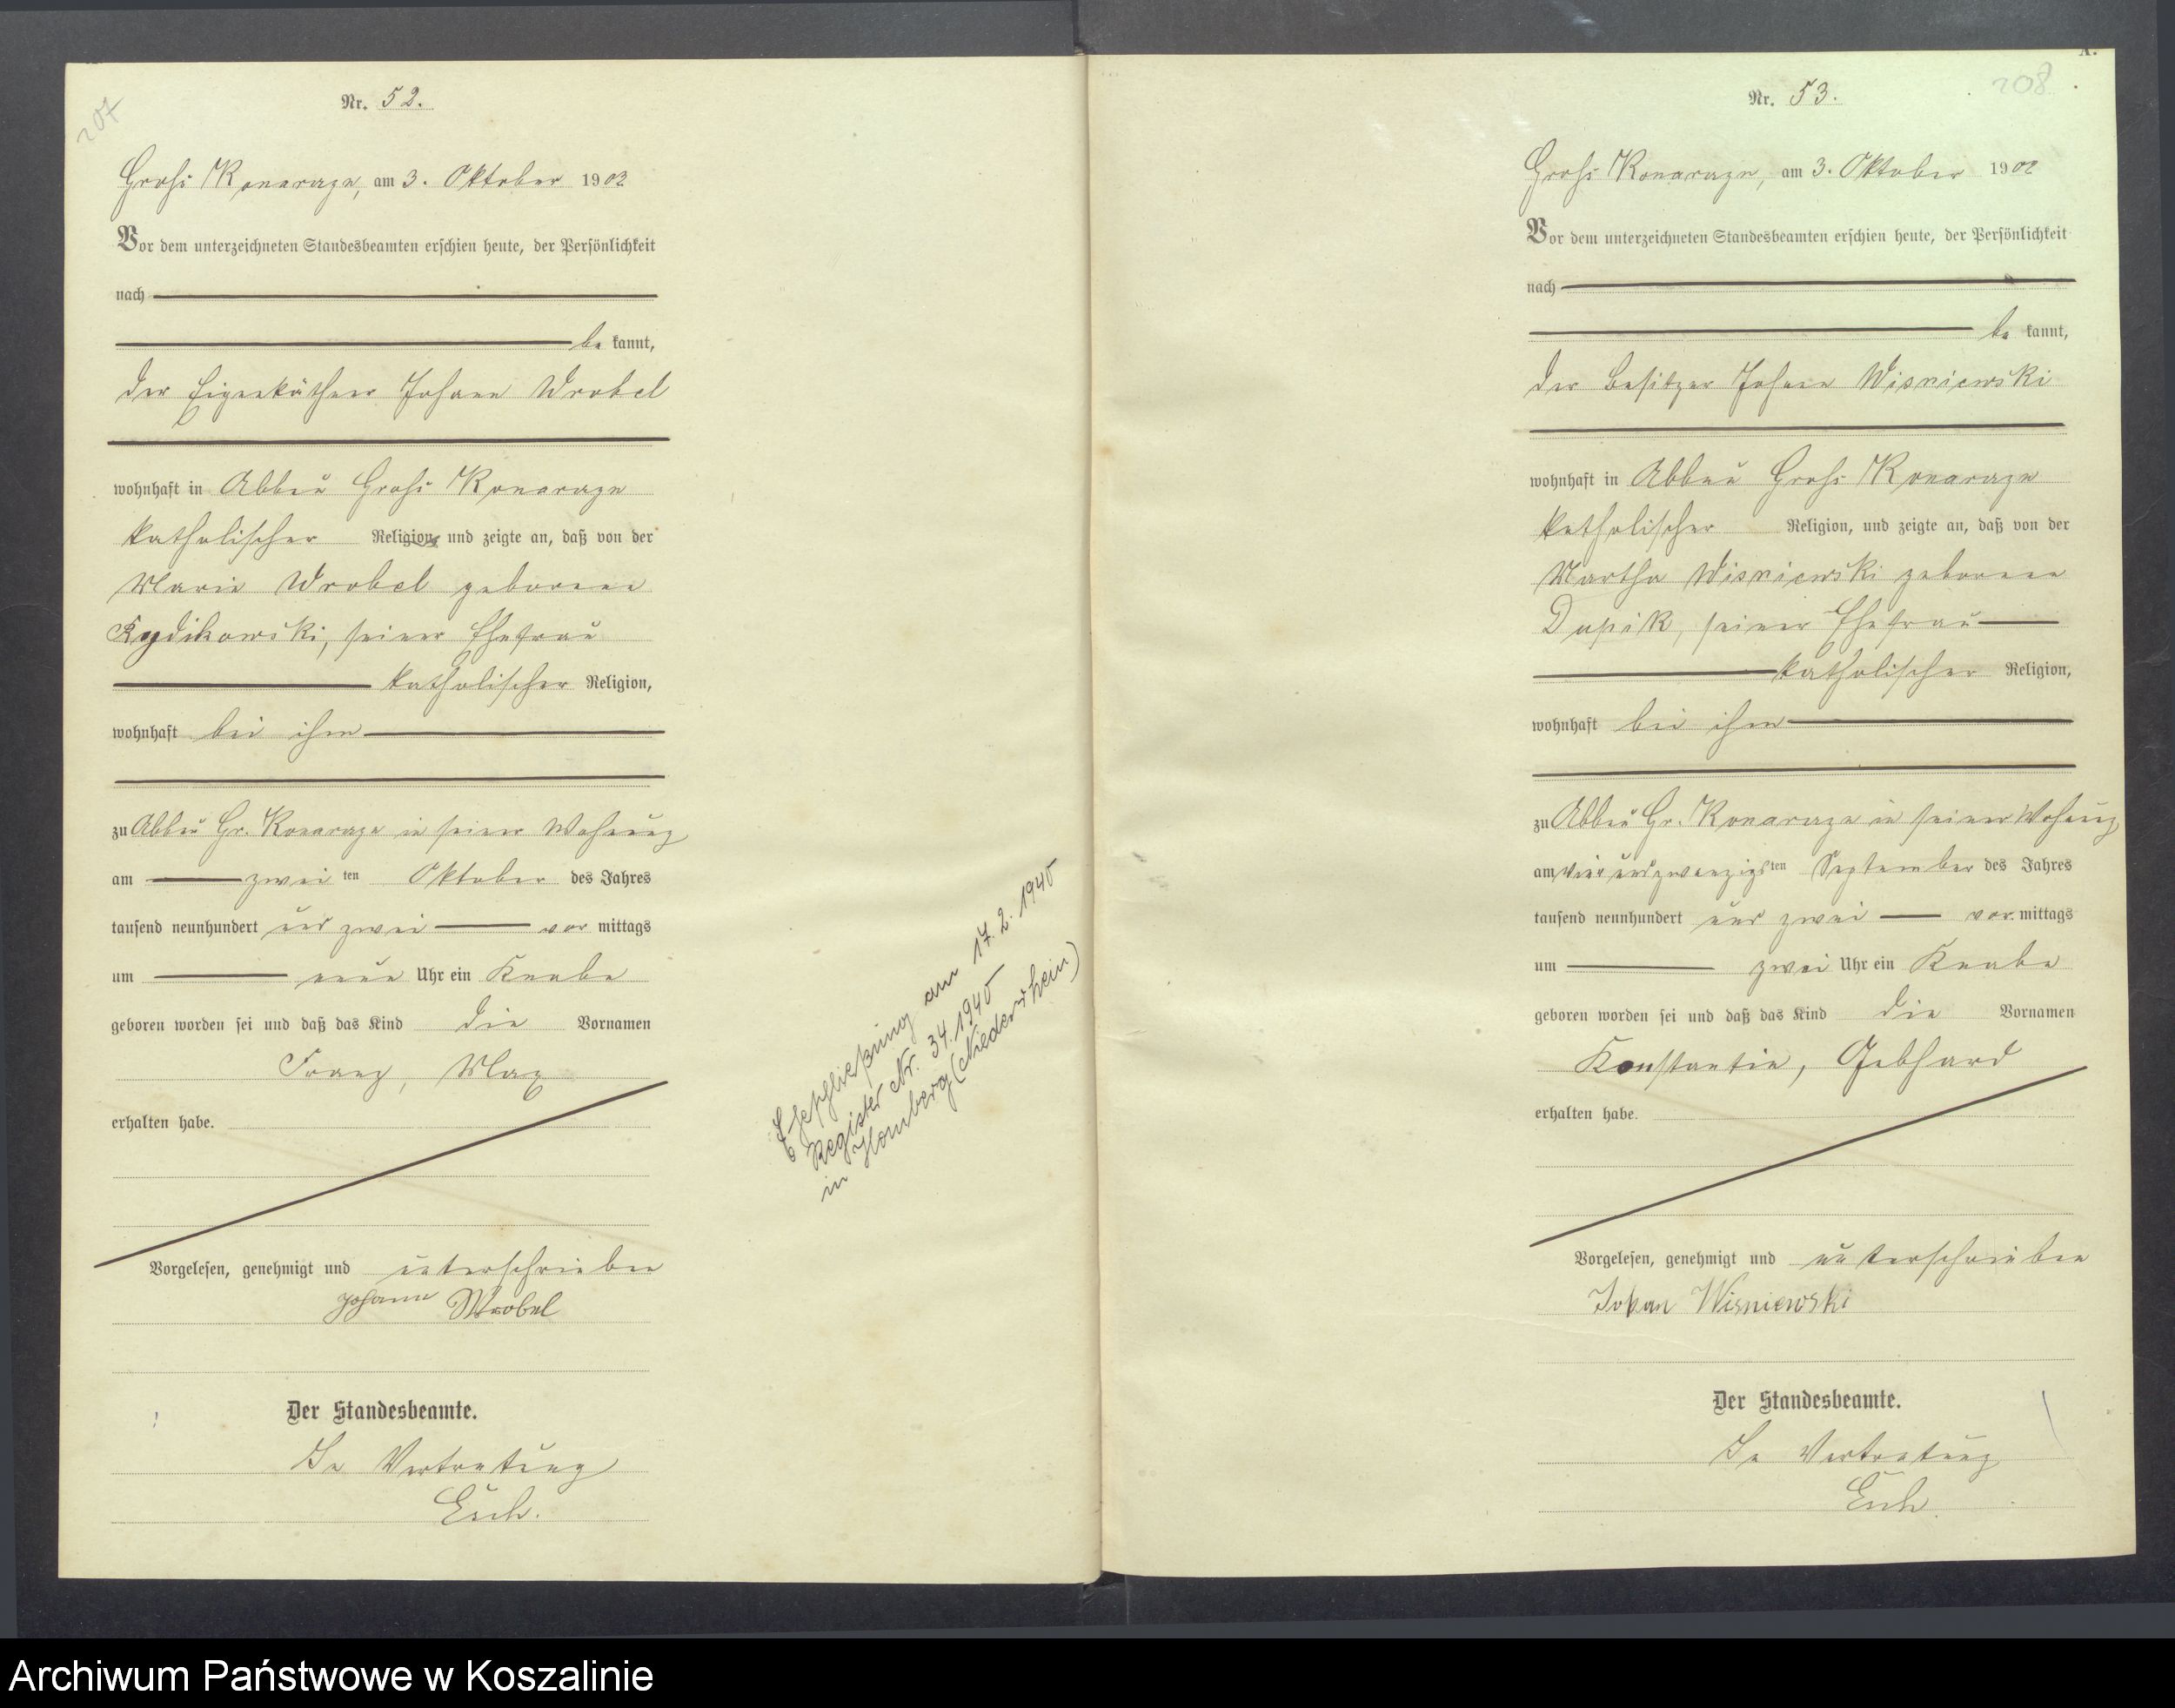 207
Nr. 52.
Groß Konarzyn, am 3. Oktober 1902
Vor dem unterzeichneten Standesbeamten erschien heute, der Persönlichkeit
nach
be kannt,
der Eigenkäthner Johann Wrobel
wohnhaft in Abbau Groß Konarzyn
katholischer Religion, und zeigte an, daß von der
Marie Wrobel geborene
seiner Ehefrau
katholischer Religion,
wohnhaft bei ihm
zu Abbau Gr. Konarzyn in seiner Wohnung
am zwei ten Oktober des Jahres
tausend neunhundert und zwei vor mittags
um neun Uhr ein Knabe
geboren worden sei und daß das Kind die Vornamen
Franz, Max
erhalten habe.
Vorgelesen, genehmigt und unterschrieben
Johann Wrobel
Der Standesbeamte.
In Vertretung
Esch.
Eheschließung am 17.2.1940
Register Nr. 34.1940
in Homberg (Niederrhein)
A.
208
Nr. 53.
Groß Konarzyn, am 3. Oktober 1902
Vor dem unterzeichneten Standesbeamten erschien heute, der Persönlichkeit
nach
be kannt,
der Besitzer Johann Wisniewski
wohnhaft in Abbau Groß Konarzyn
katholischer Religion, und zeigte an, daß von der
Martha Wisniewski geborene
seiner Ehefrau
katholischer Religion,
wohnhaft bei ihm
zu Abbau Gr. Konarzyn in seiner Wohnung
am vier und zwanzigsten September des Jahres
tausend neunhundert und zwei vor mittags
um zwei Uhr ein Knabe
geboren worden sei und daß das Kind die Vornamen
Konstantin, Gebhard
erhalten habe.
Vorgelesen, genehmigt und unterschrieben
Johan Wisniewski
Der Standesbeamte.
In Vertretung
Esch
Archiwum Państwowe w Koszalinie